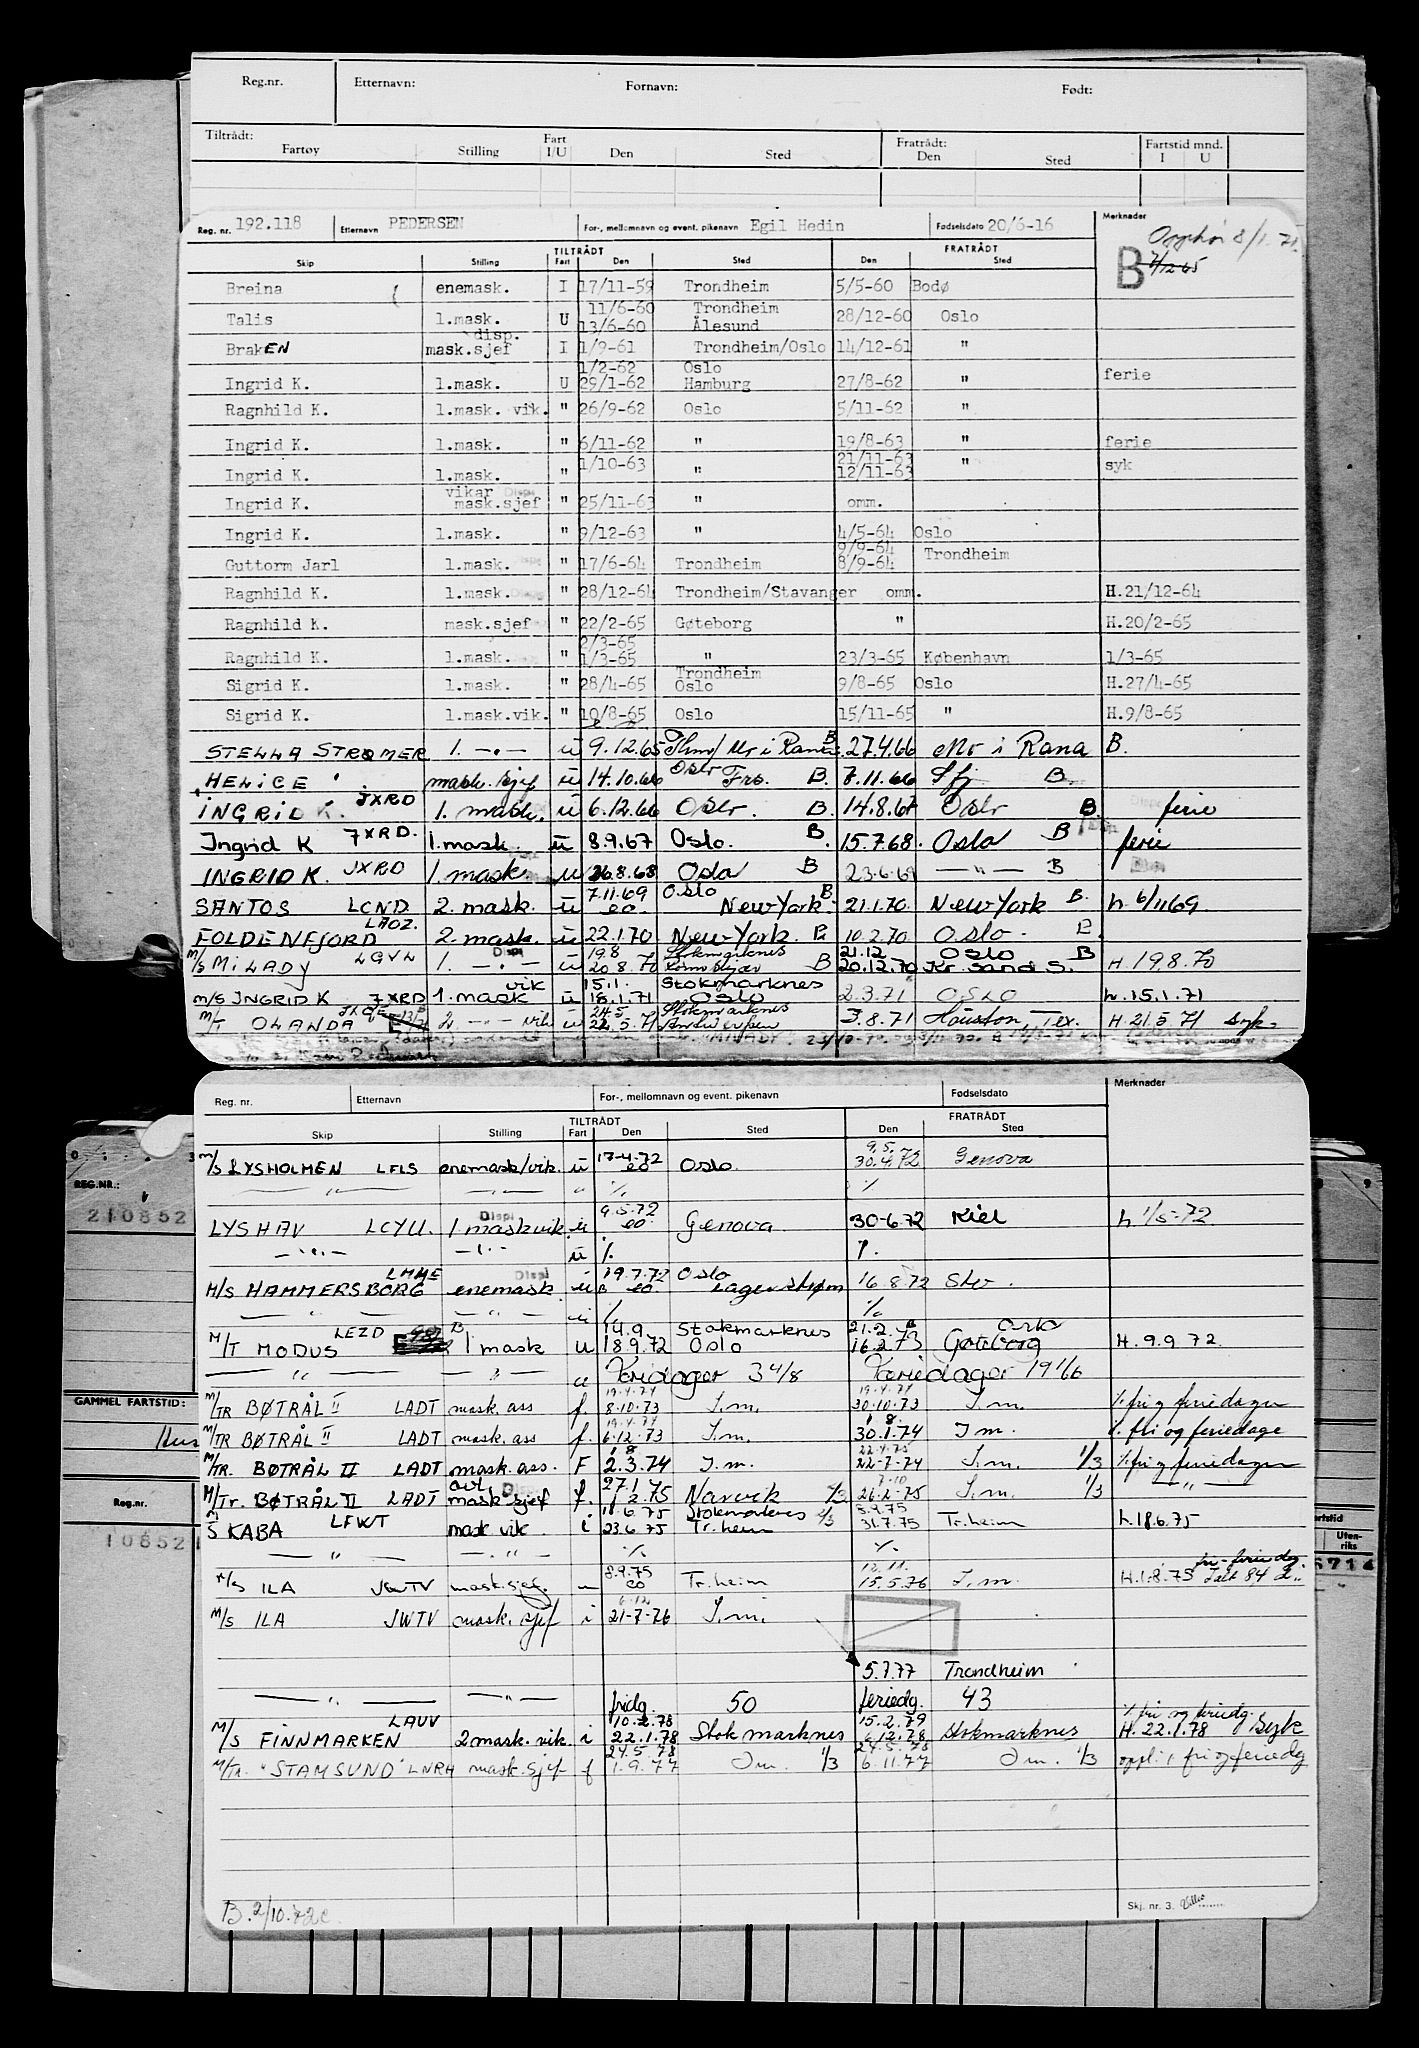 Reg.nr. Etternavn: Fornavn: Født:
Tiltrådt: Fart Fratrådt: Fartstid mnd.
Fartøy Stilling I/U Den Sted Den Sted I U
Reg. nr. 192.118 Etternavn PEDERSEN For-, mellomnavn og event. pikenavn Egil Hedin Fødselsdato 20/6-16 Merknader
Opphør 8/1.71.
B 7/12-65
TILTRÅDT FRATRÅDT
Skip Stilling Fart Den Sted Den Sted
Breina enemask. I 17/11-59 Trondheim 5/5-60 Bodø
11/6-60 Trondheim
Talis 1.mask. U 13/6-60 Ålesund 28/12-60 Oslo
disp.
BrakEN mask.sjef I 1/9-61 Trondheim/Oslo 14/12-61 "
1/2-62 Oslo
Ingrid K. 1.mask. U 29/1-62 Hamburg 27/8-62 " ferie
Ragnhild K. 1.mask. vik. " 26/9-62 Oslo 5/11-62 "
Ingrid K. 1.mask. " 6/11-62 " 19/8-63 " ferie
1/10-63 21/11-63
Ingrid K. 1.mask. " " 12/11-63 " syk
vikar Disp
Ingrid K. mask.sjef " 25/11-63 " omm.
Ingrid K. 1.mask. " 9/12-63 " 4/5-64 Oslo
9/9-64
Guttorm Jarl 1.mask. " 17/6-64 Trondheim 8/9-64 Trondheim
Ragnhild K. 1.mask. " 28/12-64 Trondheim/Stavanger omm. H.21/12-64
Ragnhild K. mask.sjef " 22/2-65 Gøteborg " H.20/2-65
2/3-65
Ragnhild K. 1.mask. " 1/3-65 " 23/3-65 København 1/3-65
Trondheim
Sigrid K. 1.mask. " 28/4-65 Oslo 9/8-65 Oslo H.27/4-65
Sigrid K. 1.mask.vik. " 10/8-65 Oslo 15/11-65 " H.9/8-65
STELLA STROMER 1. -"- u 9.12.65 Thm/ Mo i Rana B. 27.4.66 Mo i Rana B.
HELICE mask. sjef u 14.10.66 Oslo Fro. B. 7.11.66 Sfj B.
INGRID K. JXRD 1. mask. u 6.12.66 Oslo. B. 14.8.67 Oslo B. ferie
Ingrid K JXRD. 1. mask. u 8.9.67 Oslo. B. 15.7.68. Oslo B ferie
INGRID K. JXRD 1. mask. u 26.8.68 Oslo B 23.6.69 -"- B
7.11.69 Oslo
SANTOS LCND 2. mask. u eo. New York B. 21.1.70 New York B. h. 6/11 69
FOLDENFJORD LAOZ. 2. mask. u 22.1.70 New York. B 10.2.70 Oslo. B.
19.8 Stokmarknes 21.12 Oslo B
M/S MILADY LGVL 1. -"- Disp u 20.8.70 B 20.12.70 Kr. Sand S. H 19.8.70
vik 15.1. Stokmarknes
M/S INGRID K JXRD 1. mask u 18.1.71 OSLO 2.3.71 OSLO h.15.1.71
24.5 Stokmarknes
M/T OLANDA 2. -"- vik u 22.5.71 Antwerpen 3.8.71 Houston Tex. H 21.5 71 syk.
Reg. nr. Etternavn For-, mellomnavn og event. pikenavn Fødselsdato Merknader
TILTRÅDT FRATRÅDT
Skip Stilling Fart Den Sted Den Sted
9.5.72
M/S LYSHOLMEN LFLS enemask/vik. u 17.4.72 eo Oslo. 30.4.72 Genova
-"- -"- " % %
LYSHAV LCYU. 1 mask vik Disp u 9.5.72 eo. Genova 30-6.72 Kiel h 1/5-72
-"- -"- u %. %.
M/S HAMMERSBORG LMME enemask Disp u 19.7.72 eo Oslo 16.8.72 Sto.
-"- -"- u % %
14.9. Stokmarknes 21.2.
M/T MODUS LEZD 1 mask u 18.9.72 Oslo 16.2.73 Gøteborg H. 9.9 72
-"- -"- u Feriedager 3 4/8 Feriedager 19 1/6
19.4.74 19.4.74
M/TR BØTRÅL II LADT mask. ass f. 8.10.73 I.m. 30.10.73 I.m. % fri og feriedager
19.4.74 1 8.
M/TR BØTRÅL II LADT mask. ass f. 6.12.73 I.m. 30.1.74 I m. %. fri og feriedage
1 8 22.4.75
M/TR. BØTRÅL II LADT mask. ass. F 2.3.74 I.m. 22-7-74 I.m. 1/3 % fri og feriedager
27.1 7.10
M/Tr. BØTRÅL II LADT mask sjef f. 1 2.75 Narvik 1/3 26.2-75 I.m. 1/3 -"-
18.6.75 Stokmarknes 1/3 8.9.75
M/S KABA LFWT mask vik. i 23.6 75 Tr.heim 31.7.75 Tr.heim h.18.6.75
-"- -"- % %
8.9.75 12.11. fri- feriedg.
M/S ILA JWTV mask.sjef. eo Tr.heim 15.5.76 I.m. H.1.8.75 Ialt 84 d..
6.12
M/S ILA JWTV mask. sjef i 21-7-76 I.m.
5.1.77 Trondheim
-"- -"- fridg. 50 feriedg. 43
10.2.78 15.2.79 % fri og feriedg.
M/S FINNMARKEN LAUV 2 mask. vik. i 22.1.78 Stokmarknes 6.12.78 Stokmarknes H. 22.1.78 Syk
24.5 78 24.5.78
M/TR. "STAMSUND" LNRH mask. sjef f 1.9.77 I m. 1/3 6.11.77 I m. 1/3 oppl. i fri og feriedg
B. 2/10.72
Skj. nr. 3.
REG.NR.:
210852
GAMMEL FARTSTID:
Reg.nr.
10852
Uten-riks